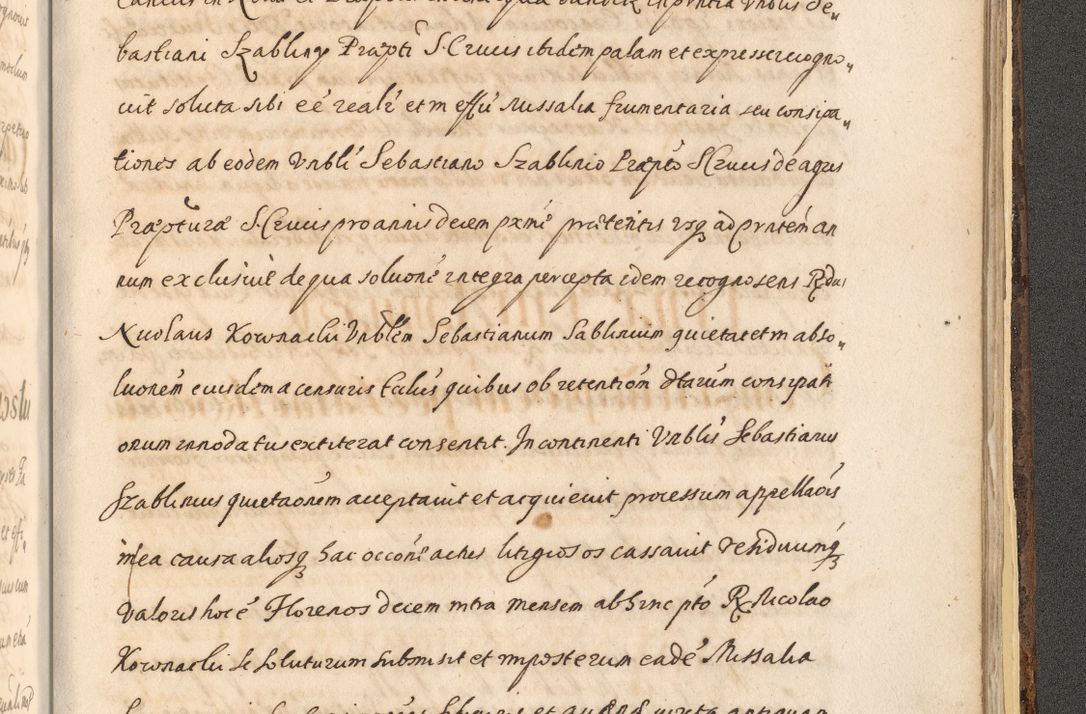 bastiani Szabliny Præpti S. Crucis itidem palam et expresse recogno„
uit soluta sibi eē realr et in effū Missalia frumentaria seu consipa„
tiones ab eodem Vnbli Sebastiano Szablinio Præpto S Crucis de agris
Præpturæ S. Crucis pro annis decem pxme præteritis vsq ad prntem an
num exclusiue de qua soluone integra percepta idem recognosens R dus
Nicolaus Kownacki Vnblem Sebastianum Sablinium quietat et in abso„
luonem eiusdem a censuris Ecclis quibus ob retentiom dtarum consipati
onum innodatus extiterat consentit. In continenti Vnblis Sebastianus
Szablinius quietaonem acceptauit et acquieuit processum appellaois
in ea causa aliosq hac occone actus litigiosos cassauit residuumq
Valoris hoc ē Florenos decem intra mensem ab hinc pto R Nicolao
Kownacki se soluturum submisit et in posterum eade Missalia